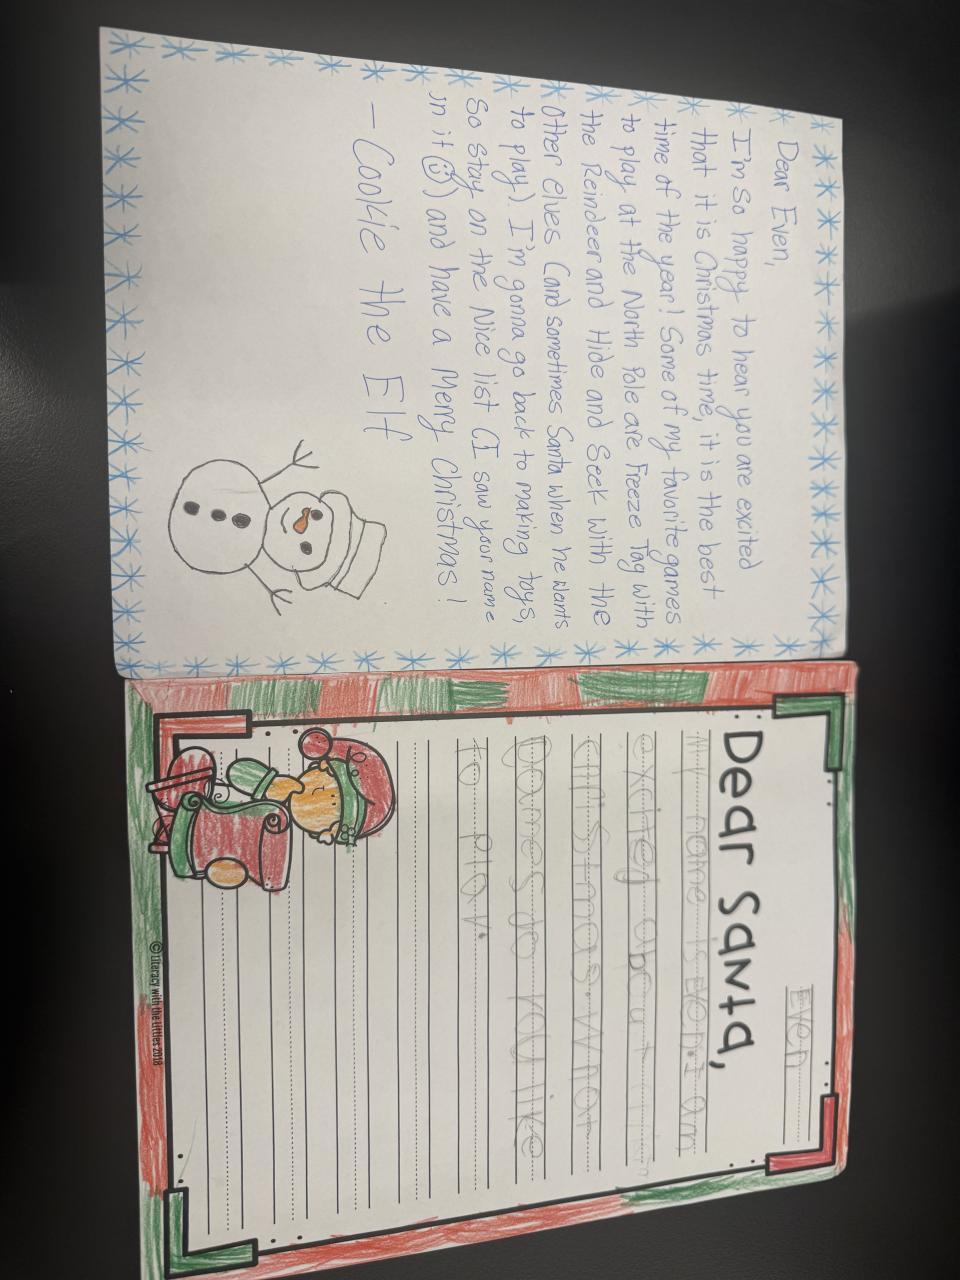 Dear Even,
I'm so happy to hear you are excited
that it is Christmas time, it is the best
time of the year! Some of my favorite games
to play at the North Pole are Freeze Tag with
the Reindeer and Hide and Seek with the
Other elves (and sometimes Santa when he wants
to play). I'm gonna go back to making toys,
So stay on the Nice list (I saw your name
in it ☺) and have a Merry Christmas!
- Cookie the Elf
Even
Dear Santa,
My name is Even. I am
excited about
Christmas. What
games do you like
to play.
© Literacy with the Littles 2018